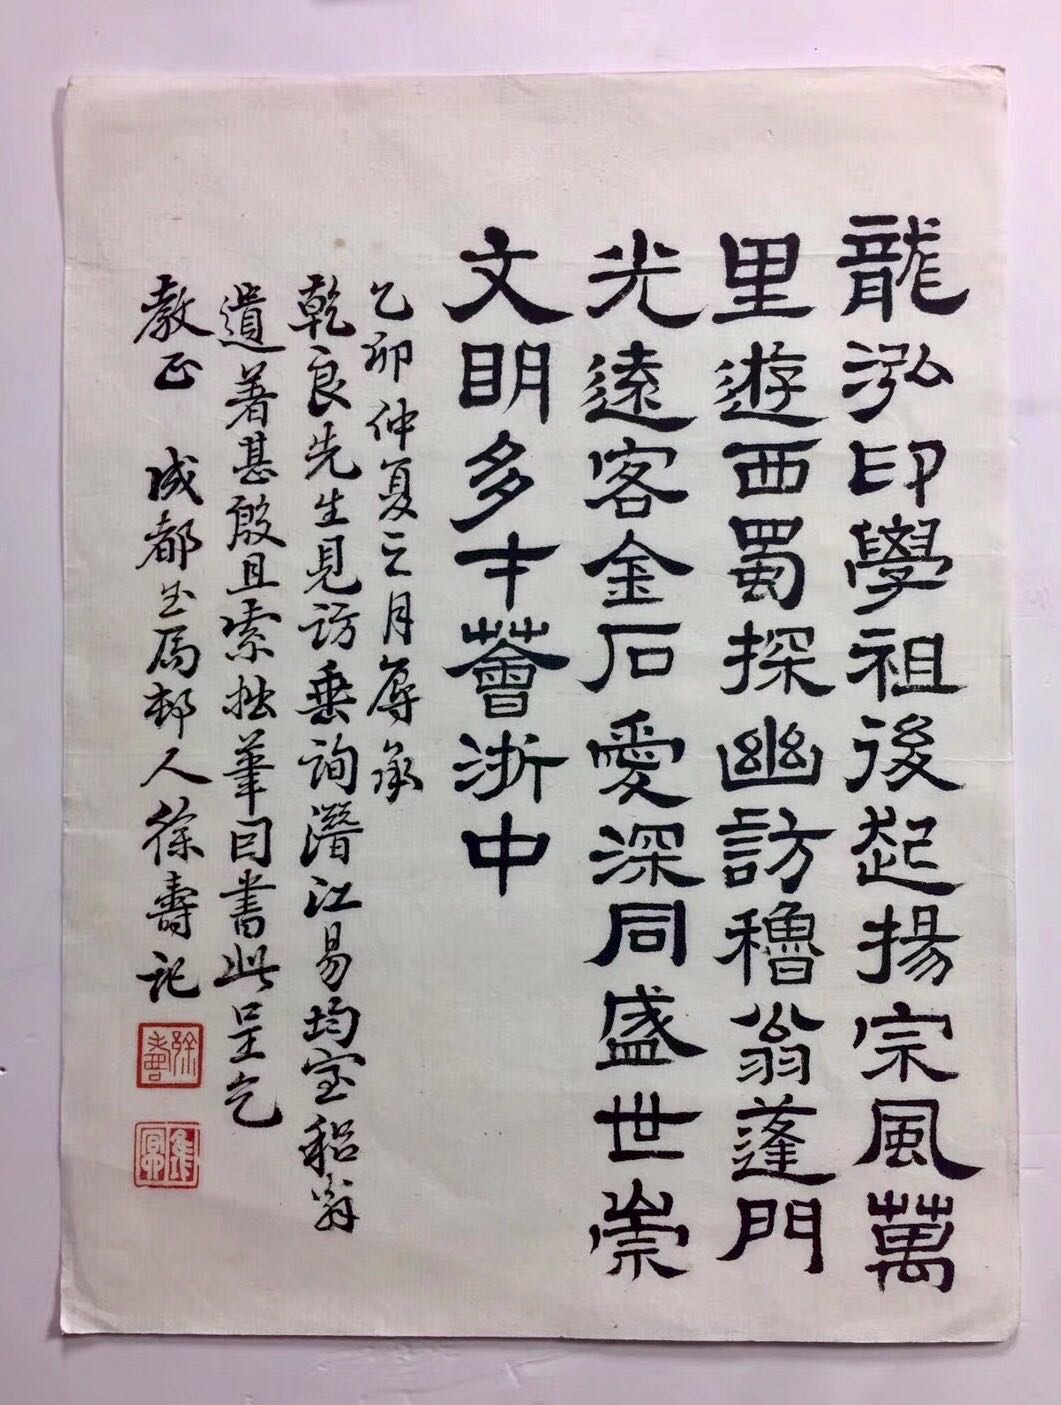 龍泓印學祖後起揚宗風萬
里遊西蜀探幽訪穭翁蓬門
光遠客金石愛深同盛世崇
文明多才薈浙中
乙卯仲夏之月辱承
乾良先生見訪垂詢潛江易均室稆翁
遺著甚殷且索拙筆因書此呈乞
教正 成都玉局邨人徐壽記
徐壽